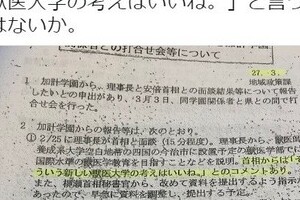 獣医大学の考えはいいね。」と言う
はないか。
者との打合せ会等について
27. 3.
地域政策課
1 加計学園から、理事長と安倍首相との面談結果等について報告
したいとの申出があり、3月3日、同学園関係者と県との間で打合
せ会を行った。
2 加計学園からの報告等は、次のとおり。
① 2/25に理事長が首相と面談(15分程度)。理事長から、獣医師
養成系大学空白地帯の四国の今治市に設置予定の獣医学部で
国際水準の獣医学教育を目指すことなどを説明。首相からは「そ
ういう新しい獣医大学の考えはいいね。」とのコメントあり。
また、柳瀬首相秘書官から、改めて資料を提出するよう指示